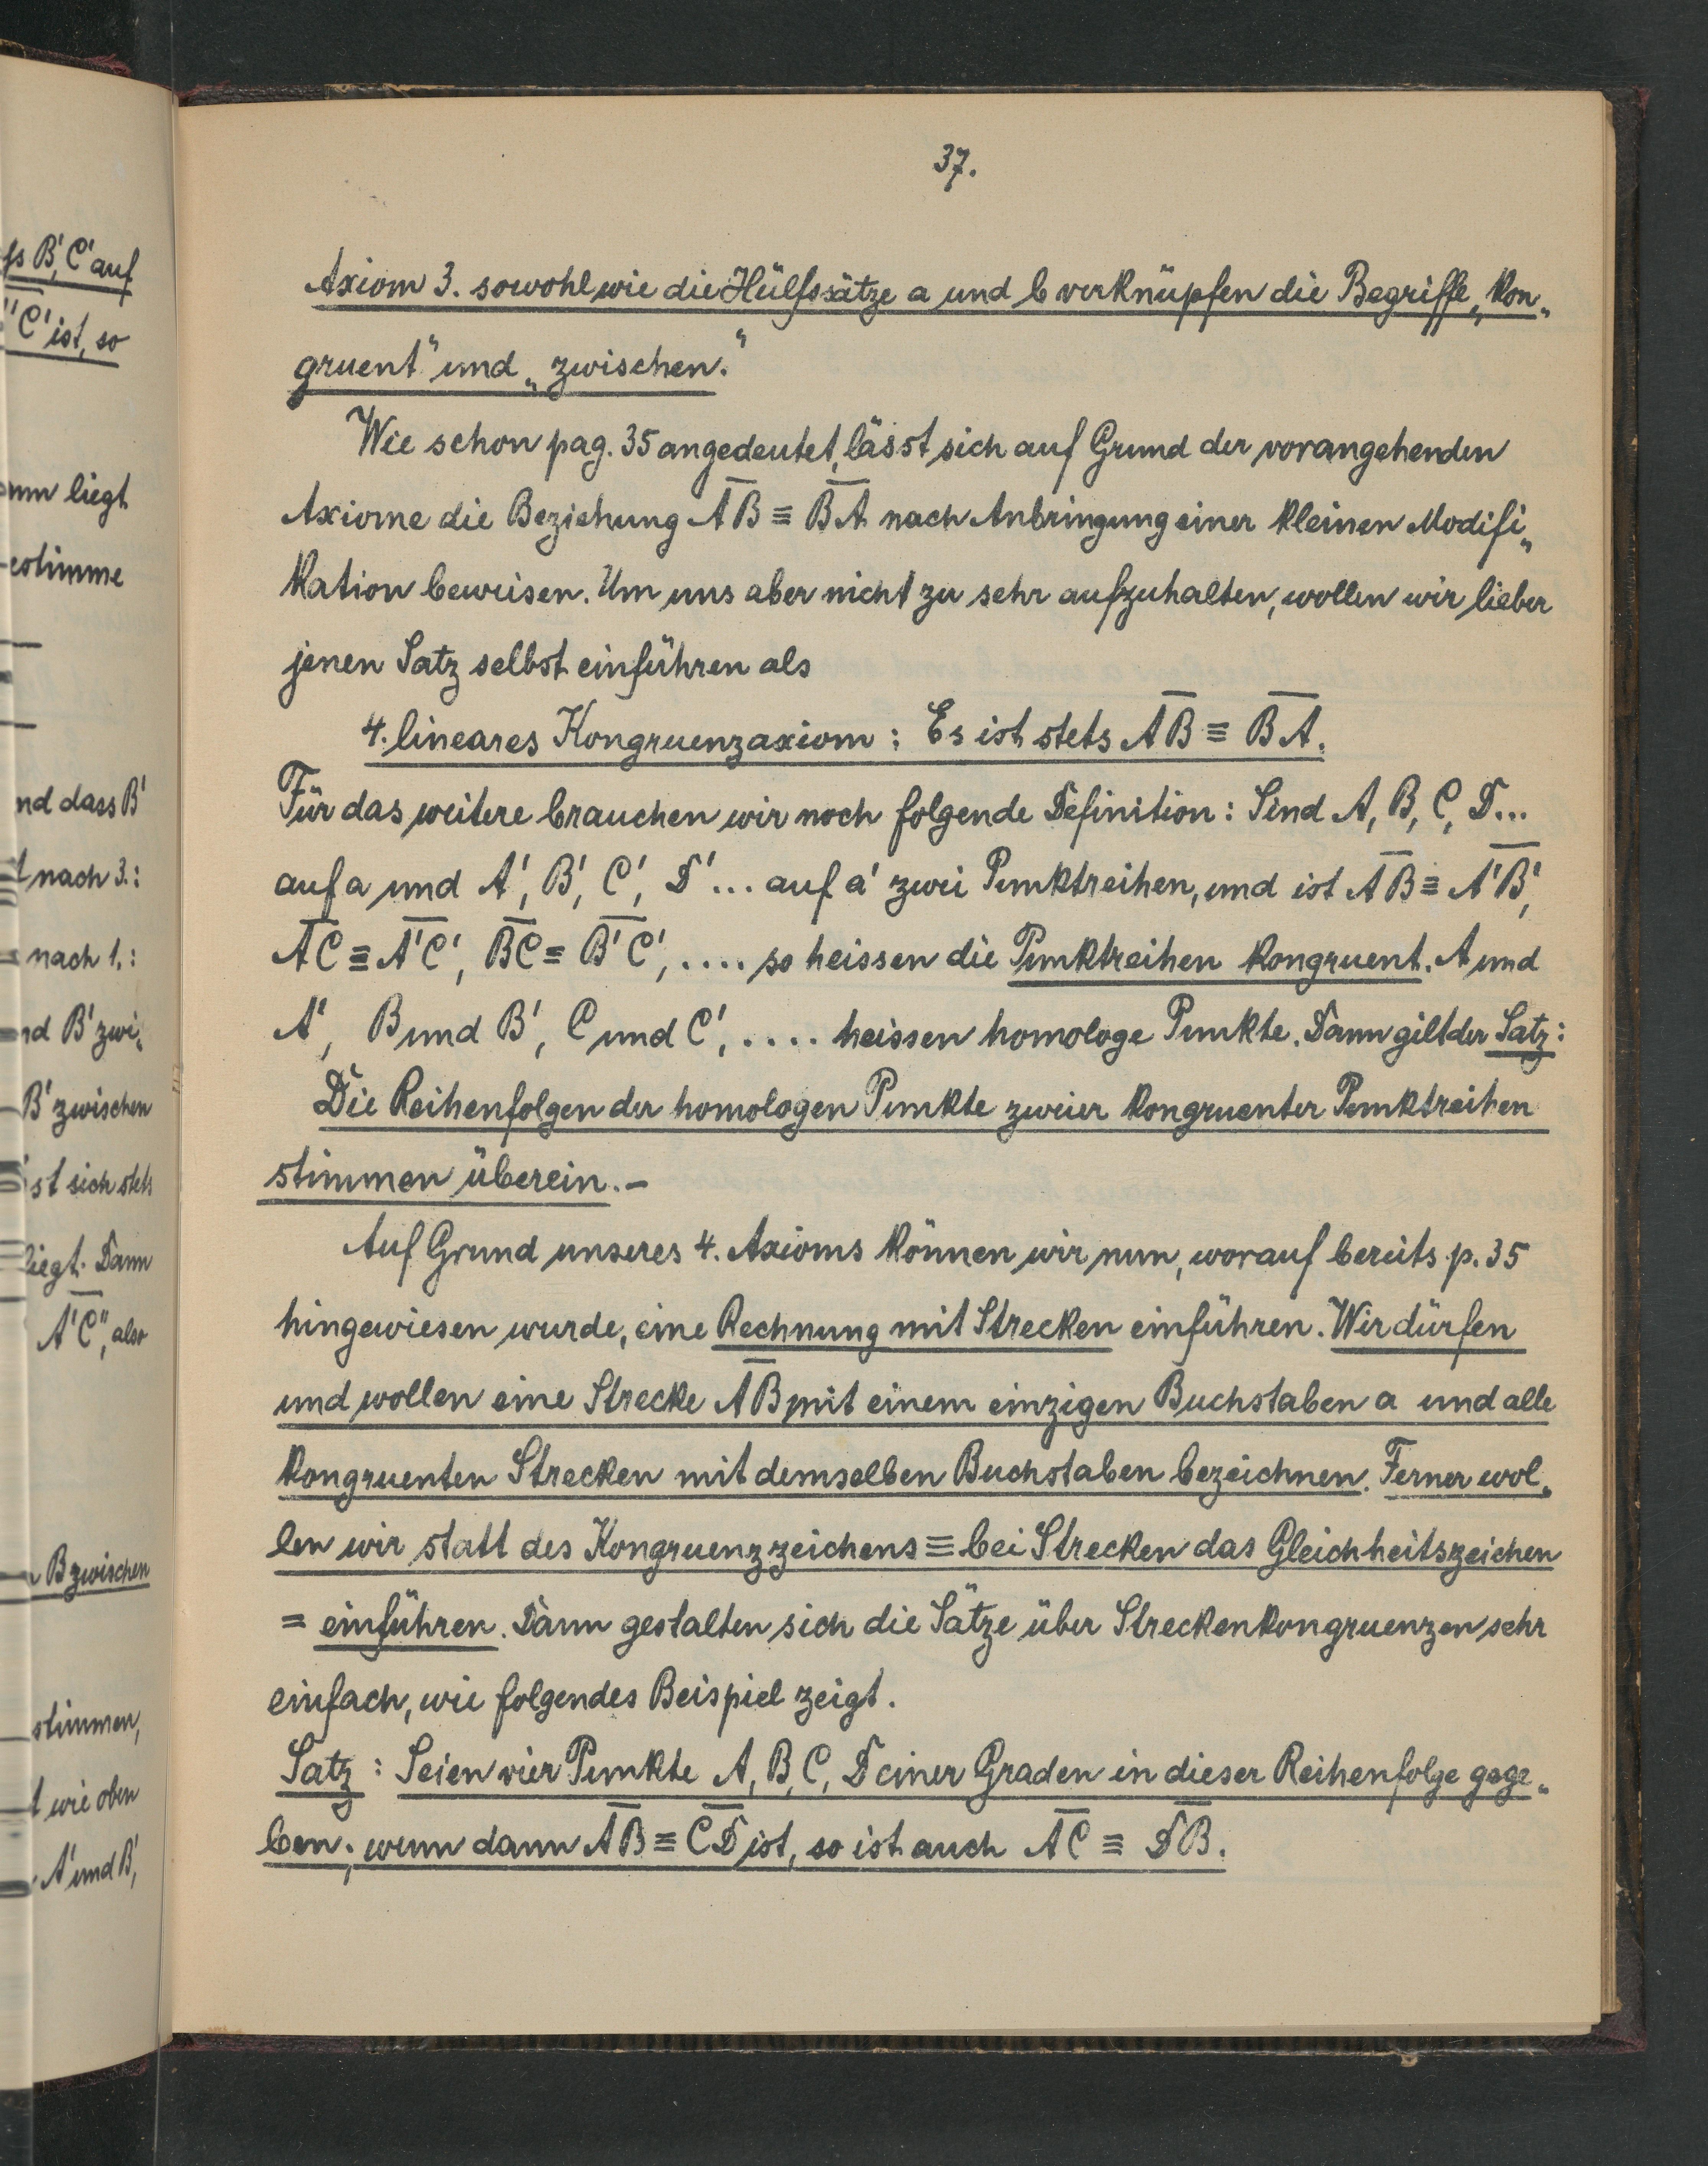 37.
Axiom 3. sowohl wie die Hülfssätze a und b verknüpfen die Begriffe „kon„
gruent“ und „zwischen.“
Wie schon pag. 35 angedeutet, lässt sich auf Grund der vorangehenden
Axiome die Beziehung A̅B̅ ≡ B̅A̅ nach Anbringung einer kleinen Modifi„
kation beweisen. Um uns aber nicht zu sehr aufzuhalten, wollen wir lieber
jenen Satz selbst einführen als
4. lineares Kongruenzaxiom: Es ist stets A̅B̅ ≡ B̅A̅.
Für das weitere brauchen wir noch folgende Definition: Sind A, B, C, D...
auf a und A', B', C', D'... auf a' zwei Punktreihen, und ist A̅B̅ ≡ A̅'B̅',
A̅C̅ ≡ A̅'C̅', B̅C̅ ≡ B̅'C̅', .... so heissen die Punktreihen kongruent. A und
A', B und B', C und C', .... heissen homologe Punkte. Dann gilt der Satz:
Die Reihenfolgen der homologen Punkte zweier kongruenter Punktreihen
stimmen überein.–
Auf Grund unseres 4. Axioms können wir nun, worauf bereits p. 35
hingewiesen wurde, eine Rechnung mit Strecken einführen. Wir dürfen
und wollen eine Strecke A̅B̅ mit einem einzigen Buchstaben a und alle
kongruenten Strecken mit demselben Buchstaben bezeichnen. Ferner wol„
len wir statt des Kongruenzzeichens ≡ bei Strecken das Gleichheitszeichen
= einführen. Dann gestalten sich die Sätze über Streckenkongruenzen sehr
einfach, wie folgendes Beispiel zeigt.
Satz: Seien vier Punkte A, B, C, D einer Graden in dieser Reihenfolge gege„
ben; wenn dann A̅B̅ ≡ C̅D̅ ist, so ist auch A̅C̅ ≡ D̅B̅.
ss B', C' auf
C' ist, so
liegt
nd dass B'
nach 3.:
nach 1.:
nd B' zwi„
B' zwischen
st sich stets
liegt. Dann
A'C'', also
B zwischen
stimmen,
wie oben
A' und B',